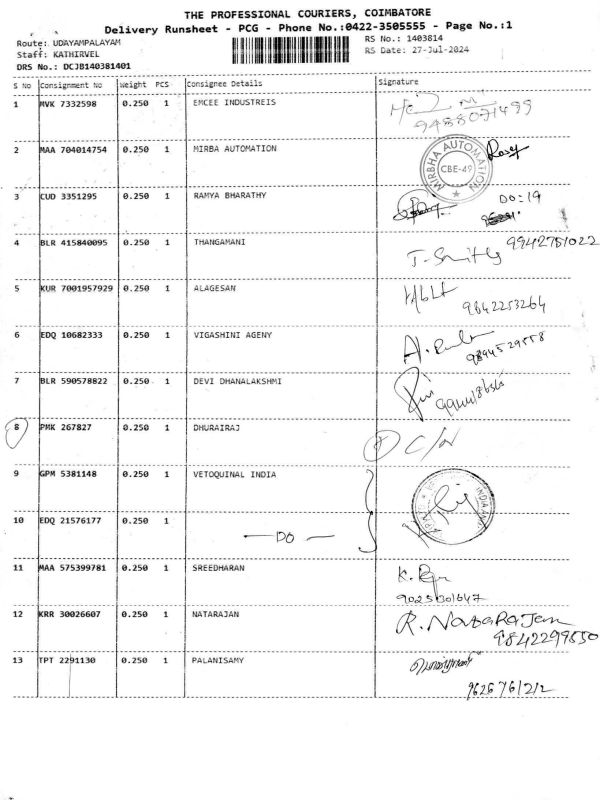 THE PROFESSIONAL COURIERS, COIMBATORE
Delivery Runsheet - PCG - Phone No.:0422-3505555 - Page No.:1
Route: UDAYAMPALAYAM
RS No.: 1403814
Staff: KATHIRVEL
RS Date: 27-Jul-2024
DRS No.: DCJB140381401
S No Consignment No Weight PCS Consignee Details Signature
1 MVK 7332598 0.250 1 EMCEE INDUSTREIS
9488071499
2 MAA 704014754 0.250 1 MIRBA AUTOMATION
MIRBHA AUTOMATION
CBE-49
3 CUD 3351295 0.250 1 RAMYA BHARATHY
DO:19
4 BLR 415840095 0.250 1 THANGAMANI
9942751022
5 KUR 7001957929 0.250 1 ALAGESAN
9842253264
6 EDQ 10682333 0.250 1 VIGASHINI AGENY
9894529558
7 BLR 590578822 0.250 1 DEVI DHANALAKSHMI
8 PMK 267827 0.250 1 DHURAIRAJ
9 GPM 5381148 0.250 1 VETOQUINAL INDIA
10 EDQ 21576177 0.250 1
— DO —
11 MAA 575399781 0.250 1 SREEDHARAN
12 KRR 30026607 0.250 1 NATARAJAN
R. NATARAJAN
9842299550
13 TPT 2291130 0.250 1 PALANISAMY